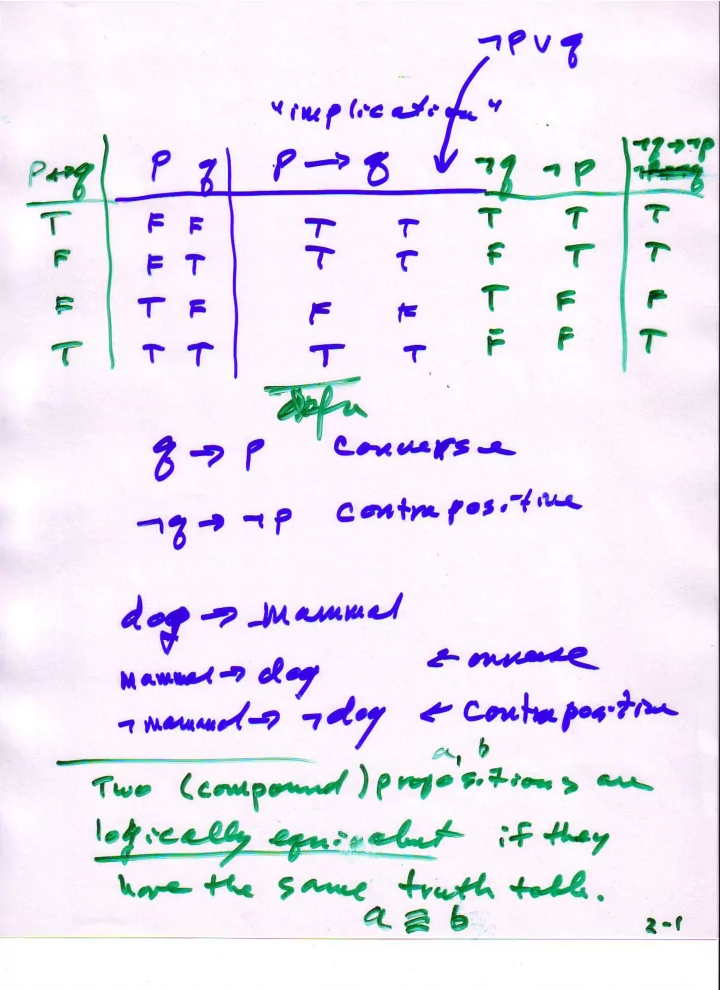 ¬P ∨ q
"implication"
P↔q P q P → q ¬q ¬P ¬q→¬p
T F F T T T T T
F F T T T F T T
F T F F F T F F
T T T T T F F T
defn
q → p converse
¬q → ¬p contrapositive
dog → mammal
mammal → dog ←
¬mammal → ¬dog ← contrapositive
a, b
Two (compound) propositions are
logically equivalent if they
have the same truth table.
a ≡ b
2-1